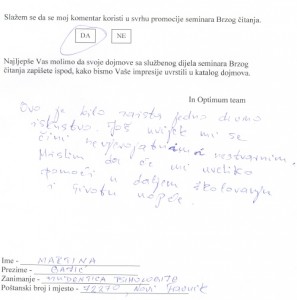 Slažem se da se moj komentar koristi u svrhu promocije seminara Brzog čitanja.
DA NE
Najljepše Vas molimo da svoje dojmove sa službenog dijela seminara Brzog
čitanja zapišete ispod, kako bismo Vaše impresije uvrstili u katalog dojmova.
In Optimum team
Ovo je bilo zaista jedno divno
iskustvo. Još uvijek mi se
čini nevjerojatnim i nestvarnim.
Mislim da će mi uveliko
pomoći u daljem školovanju
i životu uopće.
Ime -
Prezime -
Zanimanje - STUDENTICA PSIHOLOGIJE
Poštanski broj i mjesto - 72270 NOVI TRAVNIK